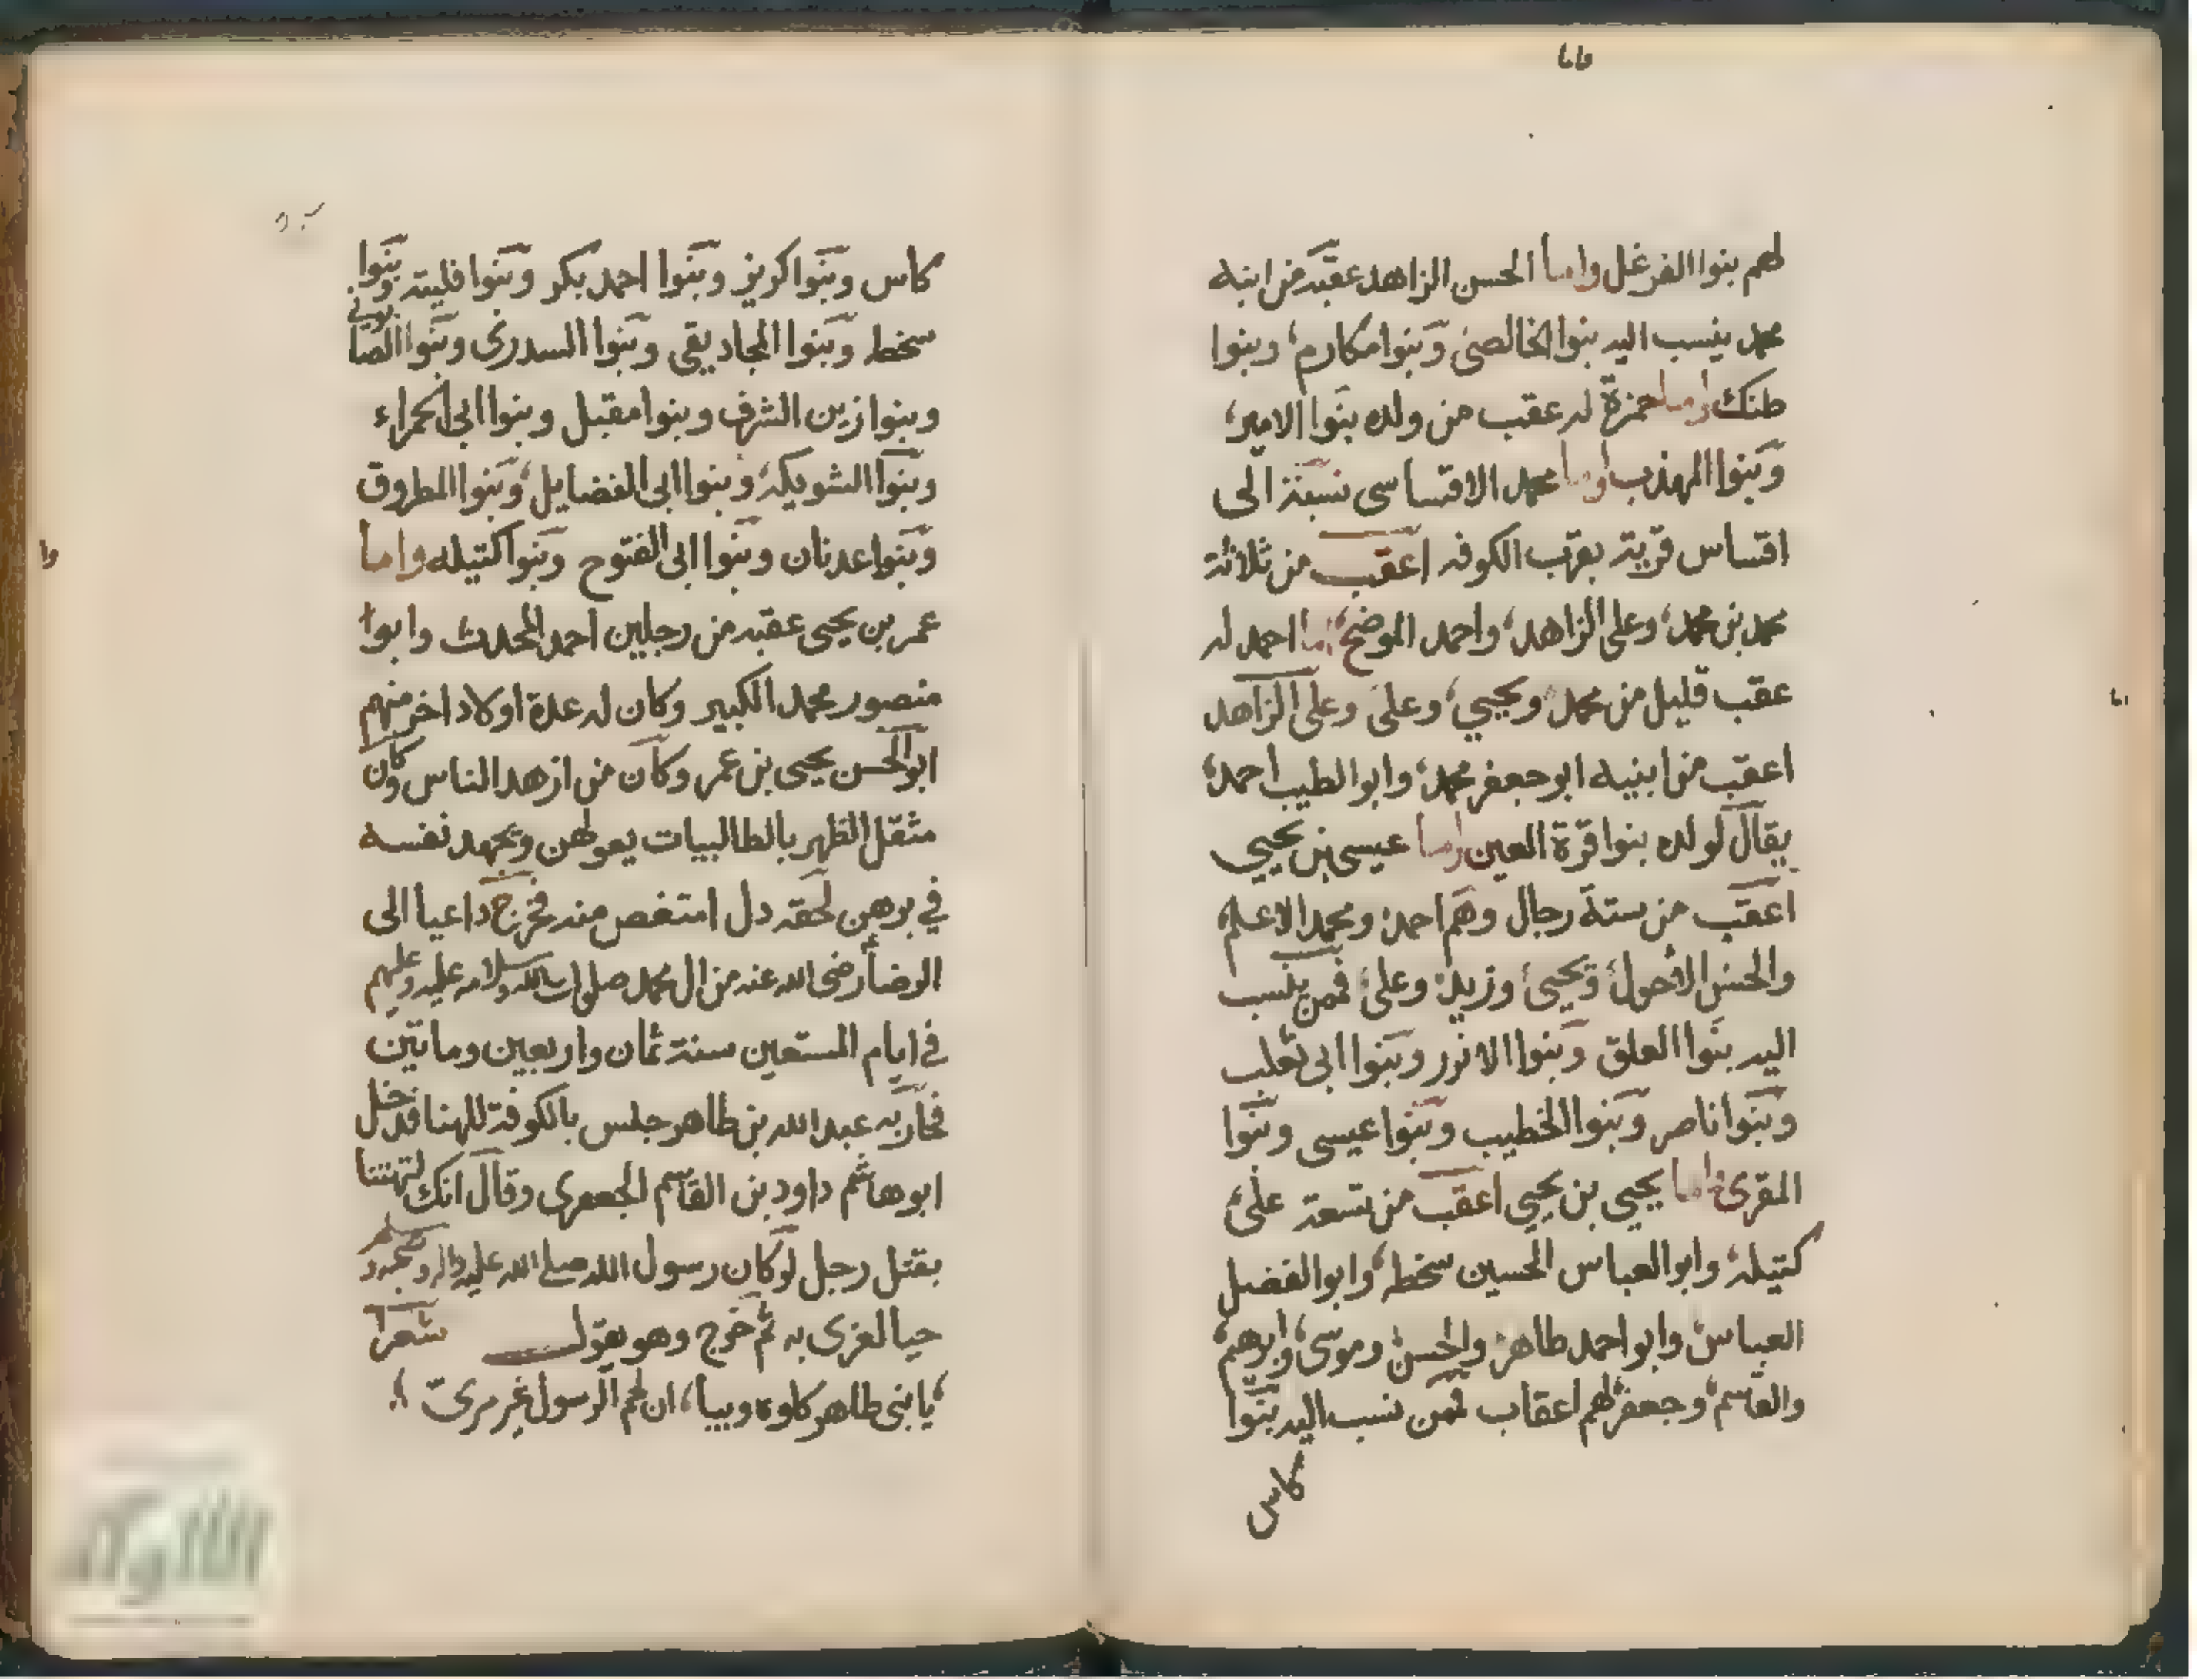 لهم بنوا الفرغل واما الحسن الزاهد عقبه من ابنه
محمد ينسب اليه بنوا الخالصي وبنوا مكارم، وبنوا
طنك واما حمزة له عقب من ولده بنوا الامير،
وبنوا المهذب واما محمد الاقساسى نسبة الى
اقساس قرية بقرب الكوفه اعقب من ثلاثة
محمد بن محمد، وعلى الزاهد، واحمد الموضح، اما احمد له
عقب قليل من محمد ويحيي، وعلى وعلى الزاهد
اعقب من ابنيه ابو جعفر محمد، وابو الطيب احمد،
يقال لولده بنوا قرة العين واما عيسى بن يحيي
اعقب من ستة رجال وهم احمد، ومحمد الاعلم،
والحسن الاحول، ويحيى، وزيد، وعلى، فمن ينسب
اليه بنوا العلق وبنوا الازرر وبنوا ابى تغلب
وبنوا ناصر وبنوا الخطيب وبنوا عيسى وبنوا
المقرى، واما يحيى بن يحيي اعقب من تسعة على
كتيله، وابو العباس الحسين سخطه، وابو الفضل
العباس، وابو احمد طاهر، والحسن، وموسى، وابرهيم،
والقاسم، وجعفر، لهم اعقاب فمن نسب اليه بنوا
كاس
كاس وبنوا كريز وبنوا احمد بكر وبنوا فليته وبنوا
سخطه وبنوا المجاديقى وبنوا السدرى وبنوا الصابونى
وبنوا زين الشرف وبنوا مقبل وبنوا ابى الحمراء
وبنوا الشويكه، وبنوا ابى الفضايل، وبنوا المطروق
وبنوا عدنان وبنوا ابى الفتوح وبنوا كتيله واما
عمر بن يحيى عقبه من رجلين احمد المحدث وابوا
منصور محمد الكبير وكان له عدة اولاد اخر منهم
ابو الحسن يحيى بن عمر وكان من ازهد الناس وكان
مثقل الظهر بالطالبيات يعولهن ويجهد نفسه
في برهن لحقه ذل امتغص منه فخرج داعيا الى
الرضا رضى الله عنه من ال محمد صلوات الله وسلامه عليه وعليهم
في ايام المستعين سنة ثمان واربعين وماتين
فحاربه عبد الله بن طاهر جلس بالكوفة للهنا فدخل
ابو هاشم داود بن القاسم الجعفرى وقال انك لتهتنا
بقتل رجل لو كان رسول الله صلى الله عليه واله وصحبه وسلم
حيا لعزى به ثم خرج وهو يقول شعرا
يا بنى طاهر كلوه وبيا، ان لحم الرسول غير مرىّ